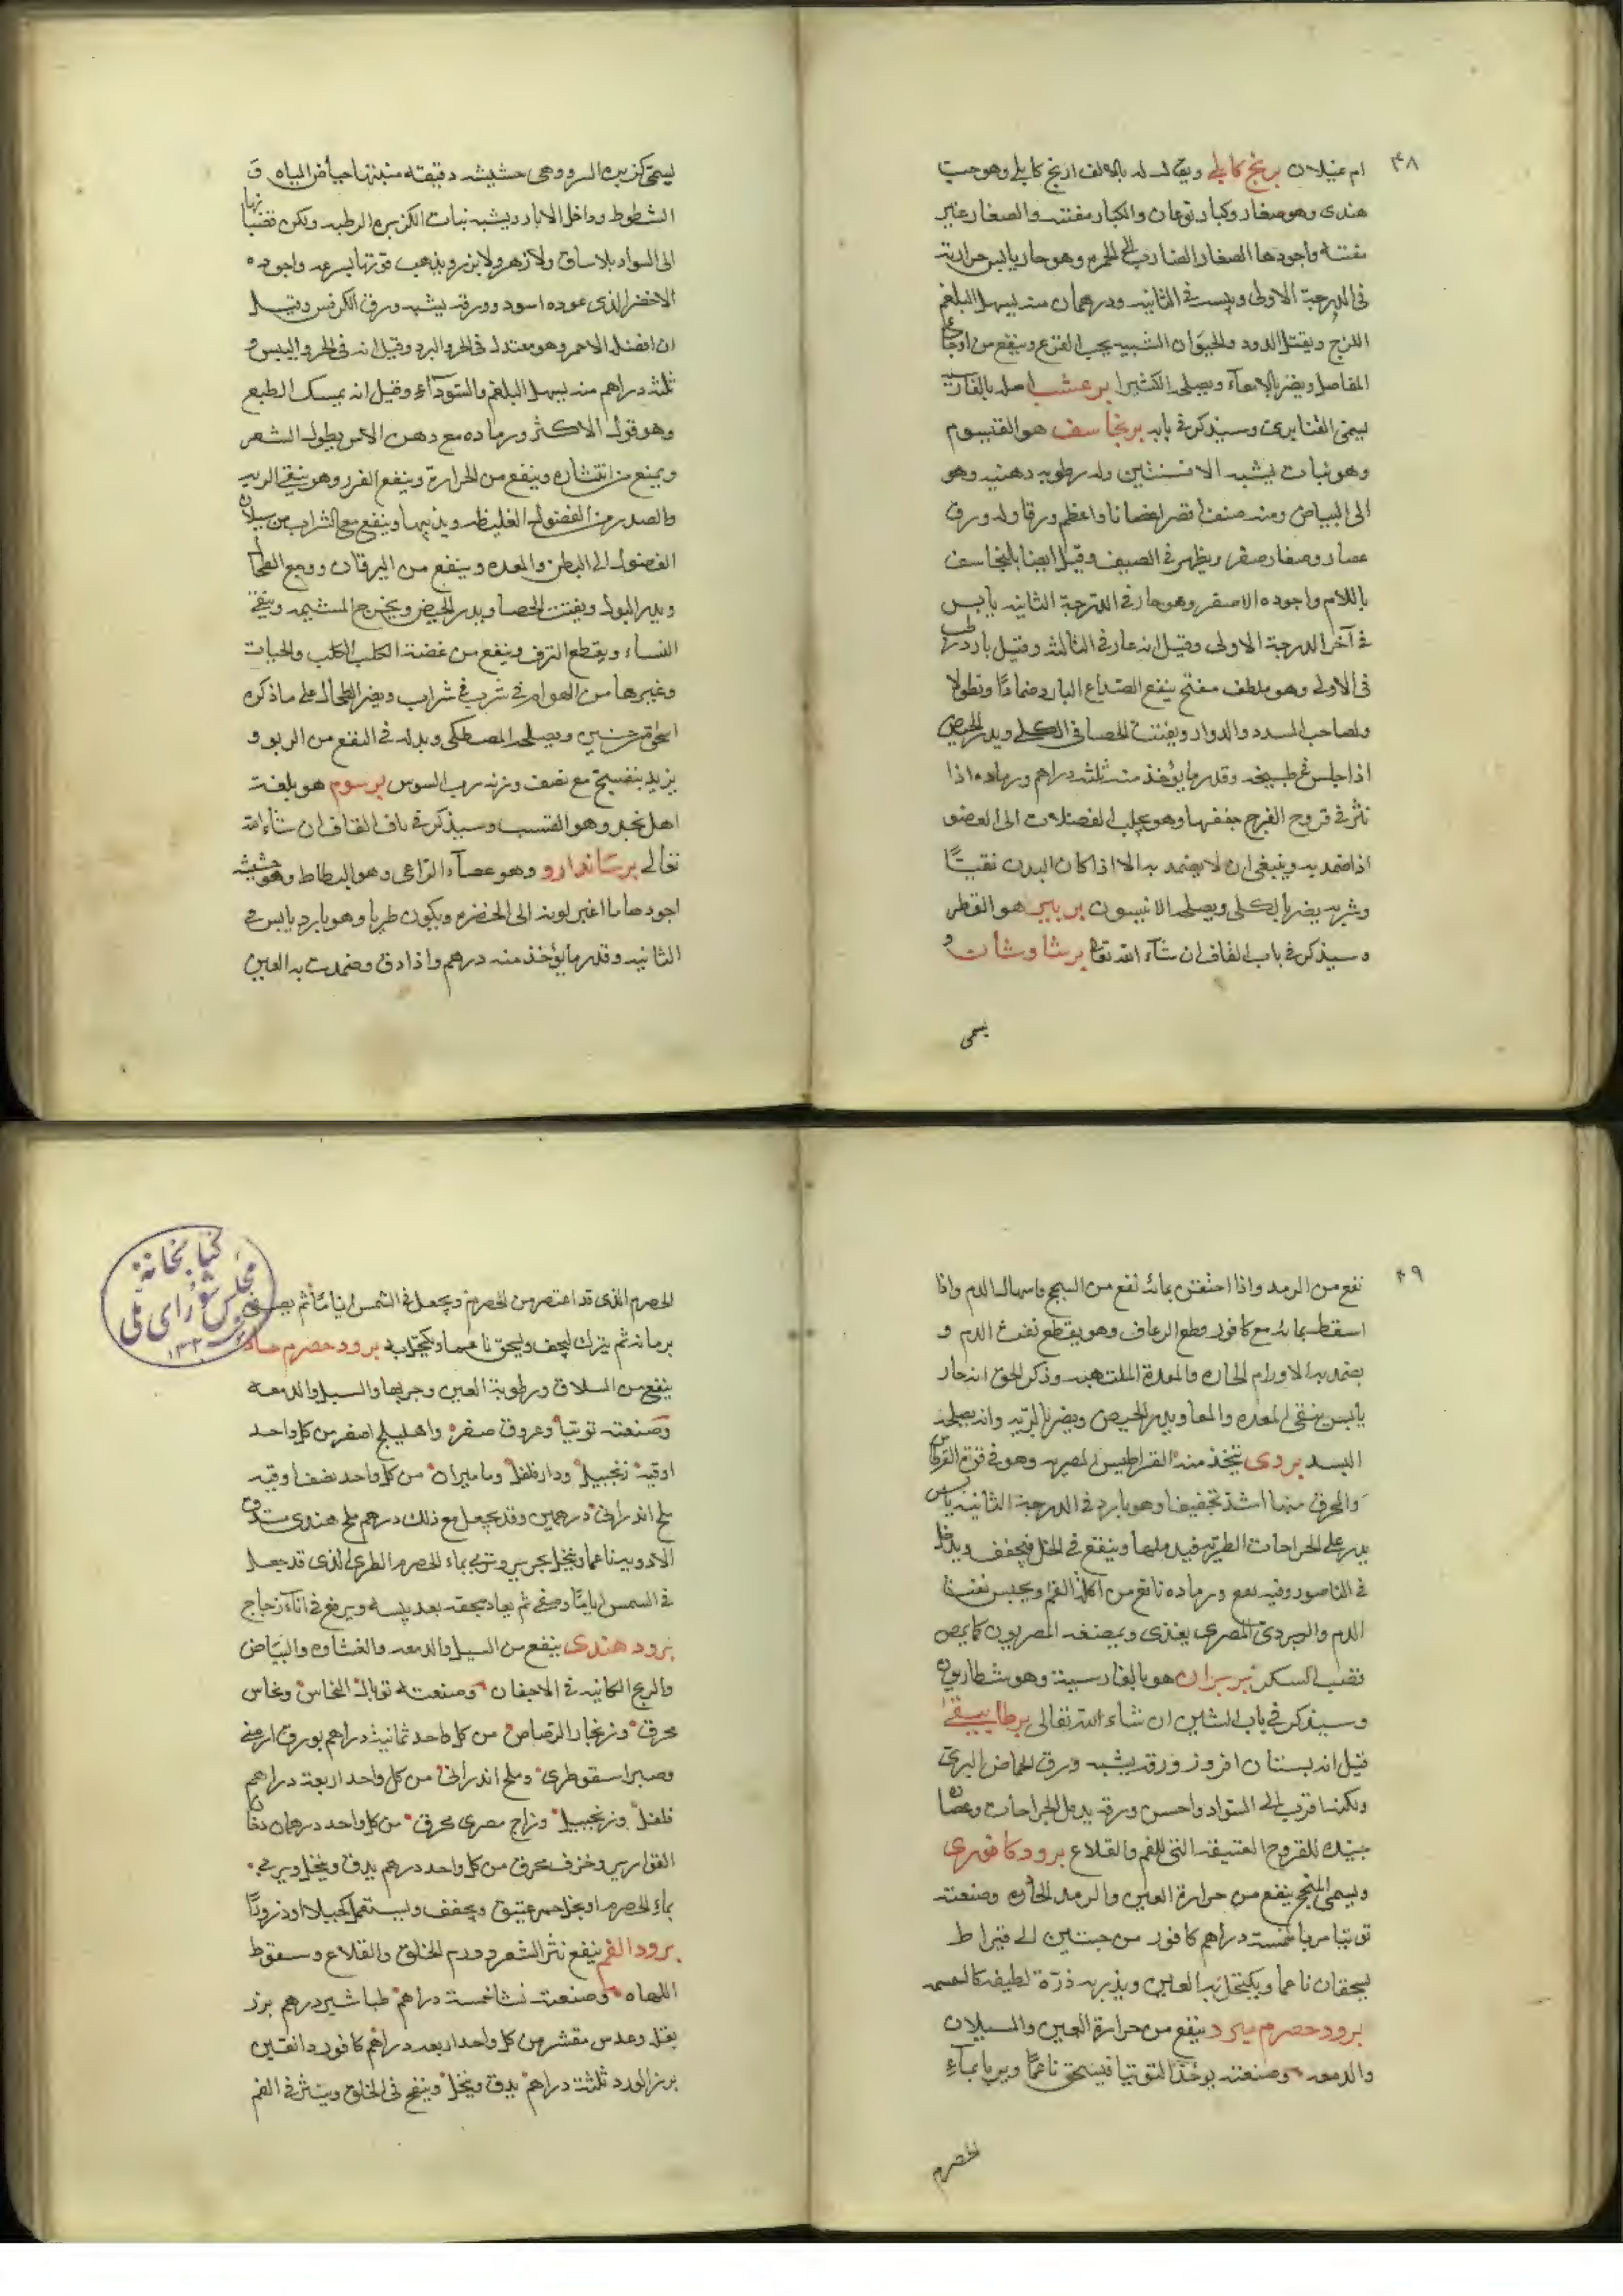 ۴۸
ام غيلان برنج كابلى ويقال له بالالف ابرنج كابلى وهو حب
هندى وهو صغار وكبار نوعان والكبار مفتته والصغار غير
مفتته واجودها الصغار الضارب الى الحمره وهو حار يابس حرارته
فى الدرجة الاولى ويبسه فى الثانيه ودرهمان منه يسهل البلغم
اللزج ويقتل الدود والحيوان الشبيه بحب القرع وينفع من اوجاع
المفاصل ويضر بالامعاء ويصلحه الكثيرا برعشت اصله بالفارسيه
يسمى القنابرى وسيذكر فى بابه برنجاسف هو القيسوم
وهو نبات يشبه الافسنتين وله رطوبه دهنيه وهو
الى البياض ومنه صنف اقصر اغصانا واعظم ورقا وله ورق
صغار وصفار صفر يظهر فى الصيف وقيل ايضا بلنجاسف
باللام واجوده الاصفر وهو حار فى الدرجة الثانيه يابس
فى آخر الدرجة الاولى وقيل انه حار فى الثالثه وقيل بارد رطب
فى الاولى وهو ملطف مفتح ينفع الصداع البارد ضمادًا ونطولا
ولصاحب السدد والدوار ويفتت الحصا فى الكلى ويدر الحيض
اذا جلس فى طبيخه وقدر ما يؤخذ منه ثلثه دراهم ورماده اذا
نثر فى قروح الفرج جففها وهو يجلب الفضلات الى العضو
اذا ضمد به وينبغى ان لا يضمد به الا اذا كان البدن نقيًّا
وشربه يضر بالكلى ويصلحه الانيسون بربير هو القطر
وسيذكر فى باب القاف ان شآء الله تعا برشاوشان
يسمى
يسمى كزبره البر وهى حشيشه دقيقه منبتها حياض المياه و
الشطوط وداخل الابار ويشبه نبات الكزبره الرطبه ولكن قضبانها
الى السواد بلا ساق ولا زهر ولا بزر ويذهب قوتها بسرعه واجوده
الاخضر الذى عوده اسود وورقه يشبه ورق الكرفس وقيل
ان افضله الاحمر وهو معتدل فى الحر والبرد وقيل انه فى الحر واليبس و
ثلثه دراهم منه يسهل البلغم والسودآء وقيل انه يمسك الطبع
وهو قول الاكثر ورماده مع دهن الاس يطول الشعر
ويمنع من انتشاره وينفع من الحرارة وينفع القرر وهو ينقى الريه
والصدر من الفضول الغليظه ويذيبها وينفع مع الشراب من سيلان
الفضول الى البطن والمعده وينفع من اليرقان ووجع الطحال
ويدر البول ويفتت الحصا ويدر الحيض ويخرج المشيمه وينقى
النساء ويقطع النزف وينفع من عضة الكلب الكلب والحيات
وغيرها من الهوام فى شرب فى شراب ويضر الطحال على ما ذكره
اسحق بن حنين ويصلحه المصطكى وبدله فى النفع من الربو و
يزيد بنفسج مع نصف وزنه رب السوس برسوم هو بلغة
اهل نجد وهو القتب وسيذكر فى باف القاف ان شآء الله
تعالى برشاندارو وهو عصآء الراعى وهو البطاط وهو حشيشه
اجودها ما اغبر لونه الى الخضره ويكون طريا وهو بارد يابس فى
الثانيه وقدر ما يؤخذ منه درهم واذا دق وضمدت به العين
۴۹
نفع من الرمد واذا احتقن بمائه نفع من السحج واسهال الدم واذا
اسقط بمائه مع كافور قطع الرعاف وهو يقطع نفث الدم و
يضمد به الاورام الحاره والمعدة الملتهبه وذكر الحق انه حار
يابس ينقى المعده والمعا ويدر الحيض ويضر بالريه وانه يصلحه
البسد بردى يتخذ منه القراطيس المصريه وهو فى قوة القرطاس
والمحرق منها اشد تجفيفا وهو بارد فى الدرجة الثانيه يابس
يدر على الجراحات الطريه فيدملها وينفع فى الخل فيجفف ويدخل
فى الناصور وفيه نفع ورماده نافع من آكلة الفم ويحبس نفث
الدم والبردى المصرى يغذى ويمضغه المصريون كما يمص
قصب السكر بربران هو بالفارسية وهو شطاريون
وسيذكر فى باب الشين ان شاء الله تعالى برطانيقى
قيل انه بستان افروز ورقه يشبه ورق الحماض البرى
ولكنه اقرب الى السواد واحسن ورقه يدمل الجراحات وعصارته
جيده للقروح العتيقه التى للفم والقلاع برود كافورى
ويسمى الملنج ينفع من حرارة العين والرمد الحاره وصنعته
توتيا مربا خمسة دراهم كافور من حبتين الى قيراط
يسحقان ناعما ويكتحل به العين ويذر به ذرة لطيفه كالعسمه
برود حصرم مبرد ينفع من حرارة العين والسيلان
والدمعه وصنعته يوخذ التوتيا فيسحق ناعمًا ويربا بمآء
الحصرم
الحصرم الذى قد اعتصر من الحصرم ويجعل فى الشمس ايامًا ثم يصفى
برمانه ثم يترك ليجف ويسحق ناعما ويكتحل به برود حصرم حاد
ينفع من السلاق ورطوبة العين وجربها والسبل والدمعه
وصنعته توتيا وعروق صفر واهليلج اصفر من كل واحد
اوقية زنجبيل ودار فلفل وماميران من كل واحد نصف اوقيه
ملح اندرانى درهمين وقد يجعل مع ذلك درهم ملح هندى تدق
الادويه ناعما وينخل بحرير وتربى بماء الحصرم الطرى الذى قد جعل
فى الشمس اياما وصفى ثم يعاد سحقه بعد يبسه ويرفع فى انآء زجاج
برود هندى ينفع من السبل والدمعه والغشاوه والبياض
والريح الكائنه فى الاجفان وصنعته توبال النحاس ونحاس
محرق وزنجار الرصاص من كل واحد ثمانية دراهم بورق ارمنى
وصبر اسقوطرى وملح اندرانى من كل واحد اربعة دراهم
فلفل وزنجبيل وزاج مصرى محرق من كل واحد درهمان دخان
القوارير وخزف محرق من كل واحد درهم يدق وينخل ويربى
بماء الحصرم او بخل خمر عتيق ويجفف ويستعمل كحيلا او ذرورًا
برود الفم ينفع نثر الشعر وورم الحلق والقلاع وسقوط
اللهاه وصنعته نشا خمسة دراهم طباشير درهم بزر
بقله وعدس مقشر من كل واحد اربعه دراهم كافور دانقين
بزر الورد ثلثة دراهم يدق وينخل وينفخ فى الحلق وينثر فى الفم
كتابخانهٔ
مجلس شورای ملی